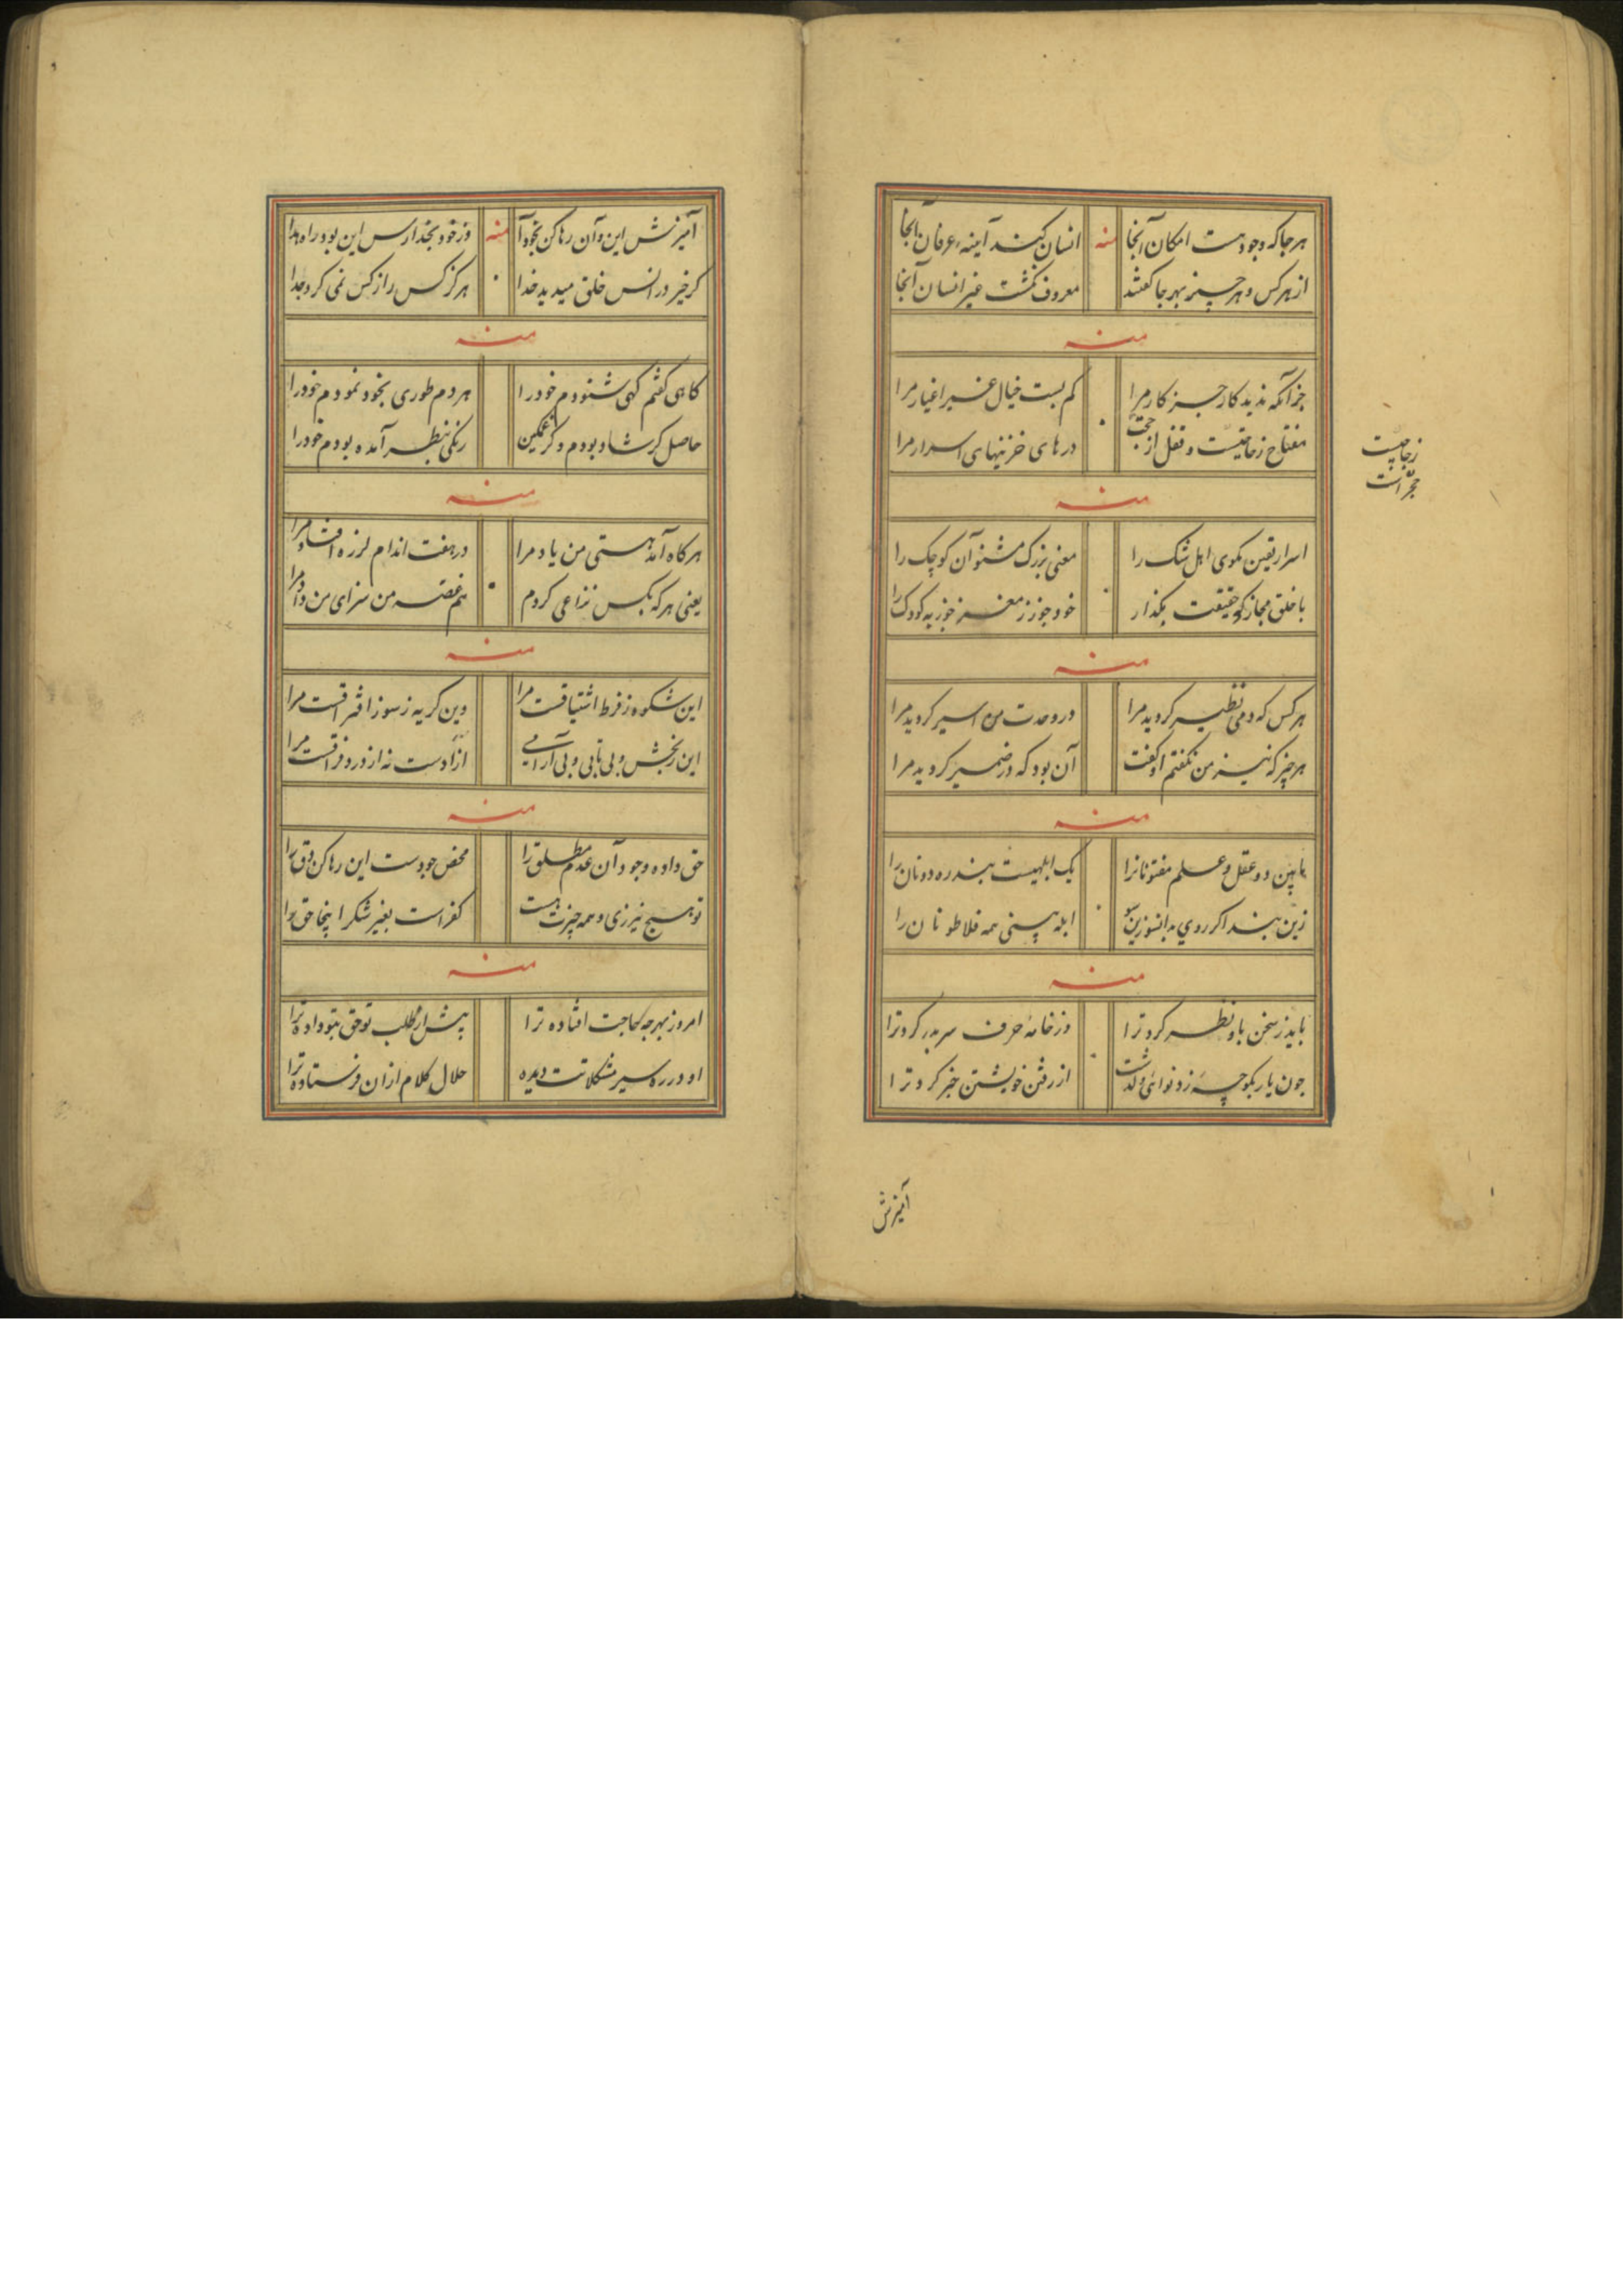 هرجا که وجود هست امکان آنجا منه انسان کند آینه عرفان آنجا
از هر کس و هر چیز بهر جا کفتند معروف نکشت غیر انسان آنجا
منه
جز آنکه ندید کار جز کار مرا کم بست خیال غیر اغیار مرا
مفتاح ز و قفل از در های خزینهای اسرار مرا
است
منه
اسرار یقین مکوی اهل شک را معنی بزرک مشنو آن کوچک را
با خلق مجاز کو حقیقت بکذار خود جوز ز مغز جوز به کودک را
منه
هر کس که دمی نظیر کردید مرا در وحدت من اسیر کردید مرا
هر چیز که نیز من نکفتم او کفت آن بود که در ضمیر کردید مرا
منه
مابین دو عقل و علم مفتونانرا یک ابلهیست بند ره دونان را
زین بند اکر روی بدانسو زین سو ابله بینی همه فلاطونان را
منه
باید ز سخن باو نظر کرد ترا وز خانهٔ حرف سر بدر کرد ترا
چون یار بکوچه زد نوائی و کذشت از رفتن خویشتن خبر کرد ترا
آمیزش
آمیزش این و آن رها کن بخود آ منه وز خود بخدا رس این بود راه هدا
کر خیر در انس خلق میدید خدا هرکز کس را ز کس نمی کرد جدا
منه
کاهی کفتم کهی شنودم خود را هر دم طوری بخود نمودم خود را
حاصل کر شاد بودم و کر غمکین رنکی بنظر آمده بودم خود را
منه
هر کاه آمد هستی من یاد مرا در هفت اندام لرزه افتاد مرا
یعنی هر که بکس نزاعی کردم هم غصه من سزای من داد مرا
منه
این شکوه ز فرط اشتیاقست مرا وین کریه ز سوز افتراقست مرا
این رنجش و بی تابی و بی آرامی از اوست نه از درد فراقست مرا
منه
حق داده وجود آن عدم مطلق را محض جودست این رها کن دق را
تو هیچ نیرزی و همه چیزت هست کفر است بغیر شکر اینجا حق را
منه
امروز بهر چه حاجت افتاده ترا پیش از طلب تو حق بتو داده ترا
او در ره سیر مشکلاتت دیده حلال کلام ازان فرستاده ترا